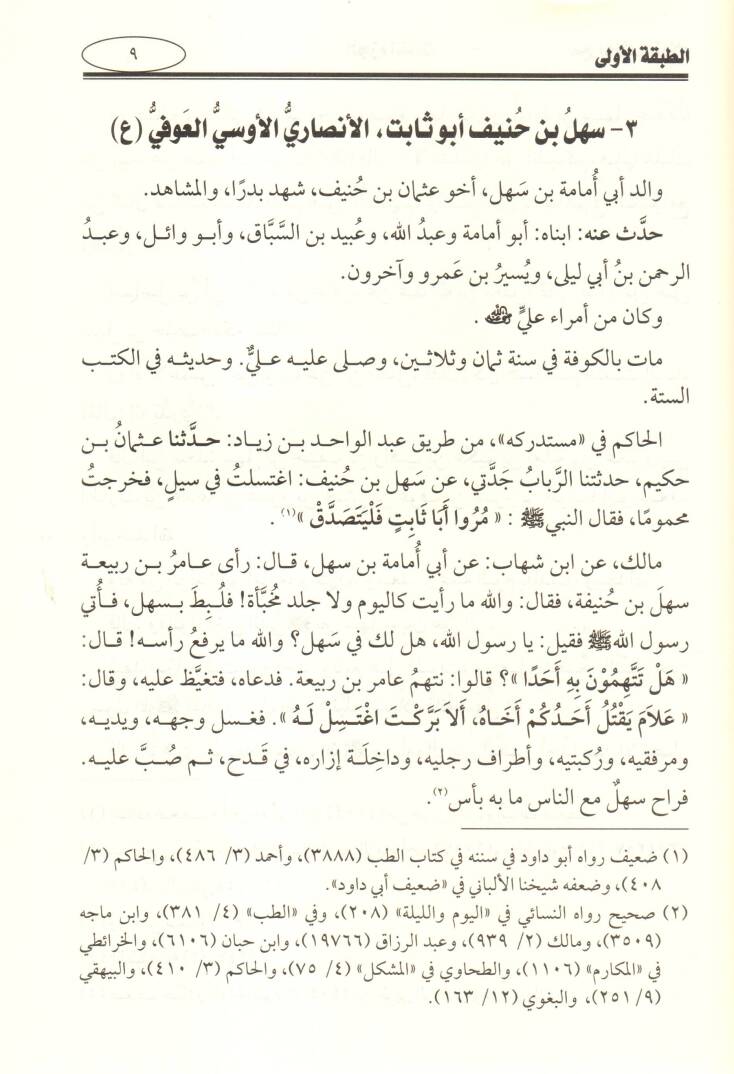 الطبقة الأولى
٩
٣- سهلُ بن حُنيف أبو ثابت، الأنصاريُّ الأوسيُّ العَوفيُّ (ع)
والد أبي أُمامة بن سَهل، أخو عثمان بن حُنيف، شهد بدرًا، والمشاهد.
حدَّث عنه: ابناه: أبو أمامة وعبدُ الله، وعُبيد بن السَّبَّاق، وأبو وائل، وعبدُ
الرحمن بنُ أبي ليلى، ويُسيرُ بن عَمرو وآخرون.
وكان من أمراء عليٍّ ﵁ .
مات بالكوفة في سنة ثمان وثلاثين، وصلى عليه عليٌّ. وحديثه في الكتب
الستة.
الحاكم في «مستدركه»، من طريق عبد الواحد بن زياد: حدَّثنا عثمانُ بن
حكيم، حدثتنا الرَّبابُ جَدَّتي، عن سَهل بن حُنيف: اغتسلتُ في سيلٍ، فخرجتُ
محمومًا، فقال النبيﷺ : « مُرُوا أَبَا ثَابِتٍ فَلْيَتَصَدَّقْ »(١) .
مالك، عن ابن شهاب: عن أبي أُمامة بن سهل، قال: رأى عامرُ بن ربيعة
سهلَ بن حُنيفة، فقال: والله ما رأيت كاليوم ولا جلد مُخبَّأة! فلُبِطَ بسهل، فأُتي
رسول اللهﷺ فقيل: يا رسول الله، هل لك في سَهل؟ والله ما يرفعُ رأسه! قال:
« هَلْ تَتَّهِمُوْنَ بِهِ أَحَدًا »؟ قالوا: نتهمُ عامر بن ربيعة. فدعاه، فتغيَّظ عليه، وقال:
« عَلاَمَ يَقْتُلُ أَحَدُكُمْ أَخَاهُ، أَلاَ بَرَّكْتَ اغْتَسِلْ لَهُ ». فغسل وجهه، ويديه،
ومرفقيه، ورُكبتيه، وأطراف رجليه، وداخِلَة إزاره، في قَدح، ثم صُبَّ عليه.
فراح سهلٌ مع الناس ما به بأس(٢).
(١) ضعيف رواه أبو داود في سننه في كتاب الطب (٣٨٨٨)، وأحمد (٣/ ٤٨٦)، والحاكم (٣/
٤٠٨)، وضعفه شيخنا الألباني في «ضعيف أبي داود».
(٢) صحيح رواه النسائي في «اليوم والليلة» (٢٠٨)، وفي «الطب» (٤/ ٣٨١)، وابن ماجه
(٣٥٠٩)، ومالك (٢/ ٩٣٩)، وعبد الرزاق (١٩٧٦٦)، وابن حبان (٦١٠٦)، والخرائطي
في «المكارم» (١١٠٦)، والطحاوي في «المشكل» (٤/ ٧٥)، والحاكم (٣/ ٤١٠)، والبيهقي
(٩/ ٢٥١)، والبغوي (١٢/ ١٦٣).